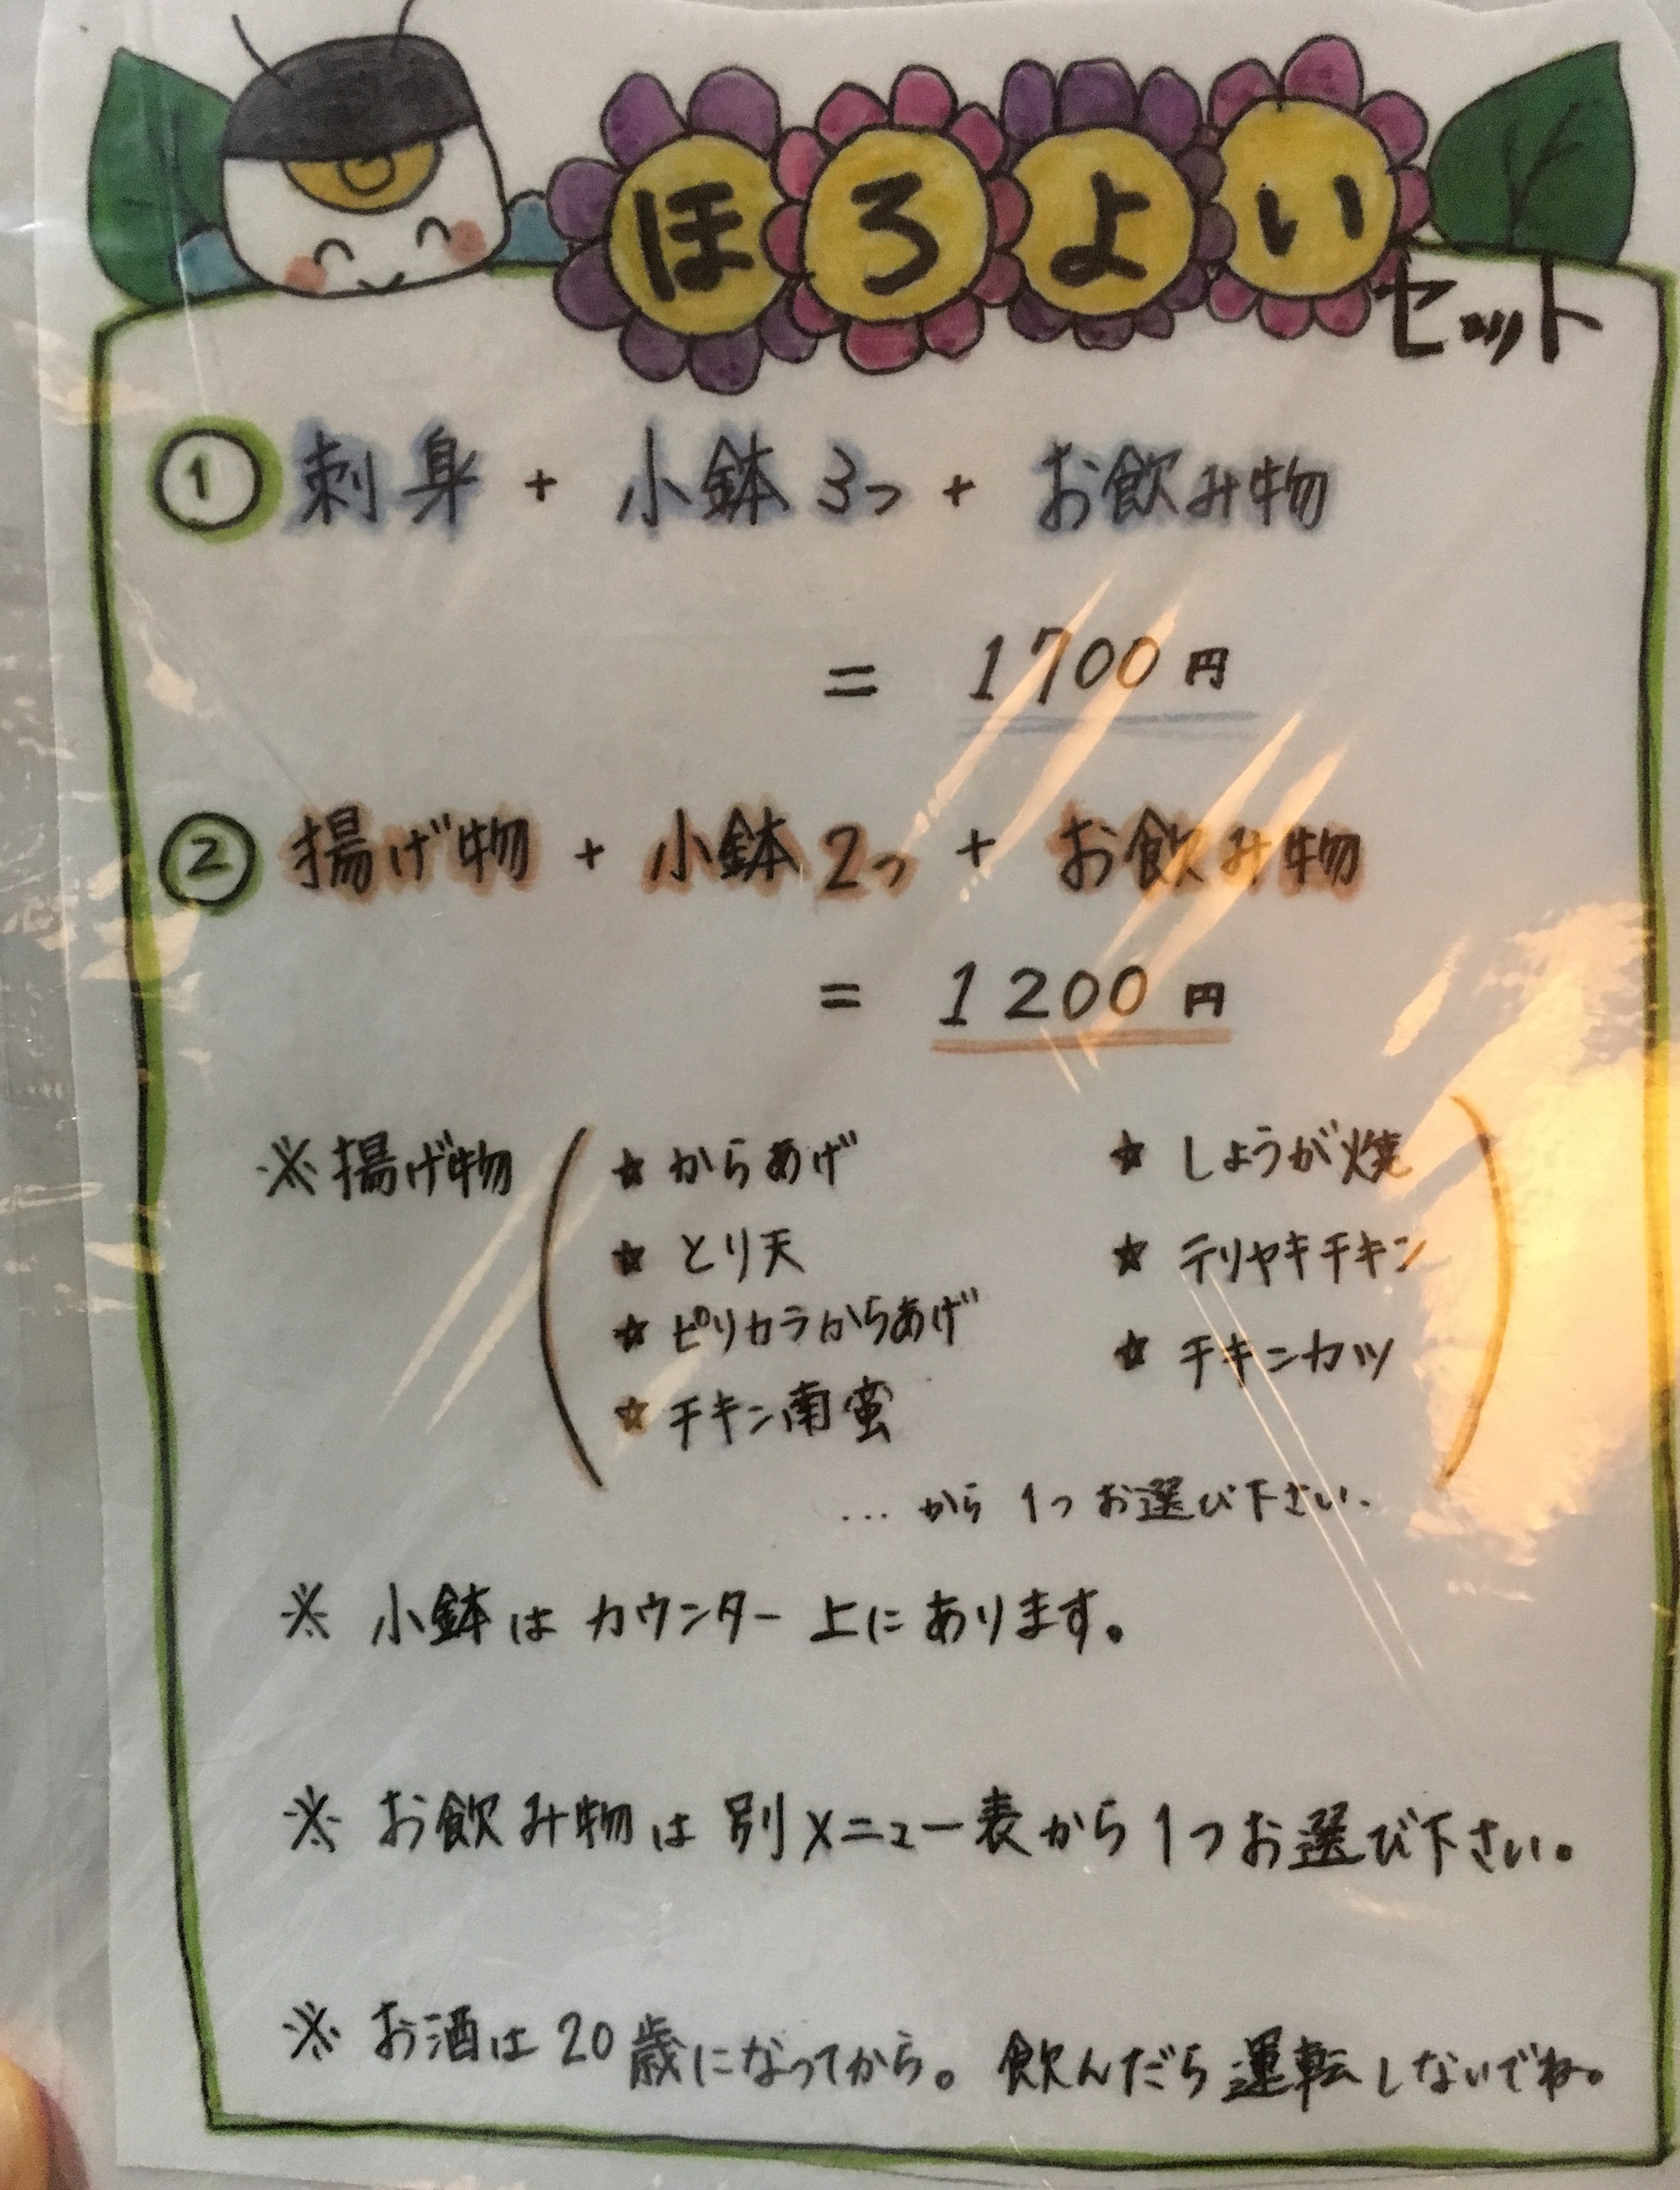 ほろよい
セット
① 刺身 + 小鉢 3つ + お飲み物
= 1700円
② 揚げ物 + 小鉢 2つ + お飲み物
= 1200円
※揚げ物 ( ★ からあげ ★ しょうが焼
★ とり天 ★ テリヤキチキン
★ ピリカラからあげ ★ チキンカツ
★ チキン南蛮 )
... から 1つ お選び下さい.
※ 小鉢は カウンター 上に あります。
※ お飲み物は 別メニュー表から 1つお選び下さい。
※ お酒は 20歳になってから。 飲んだら 運転しないでね。